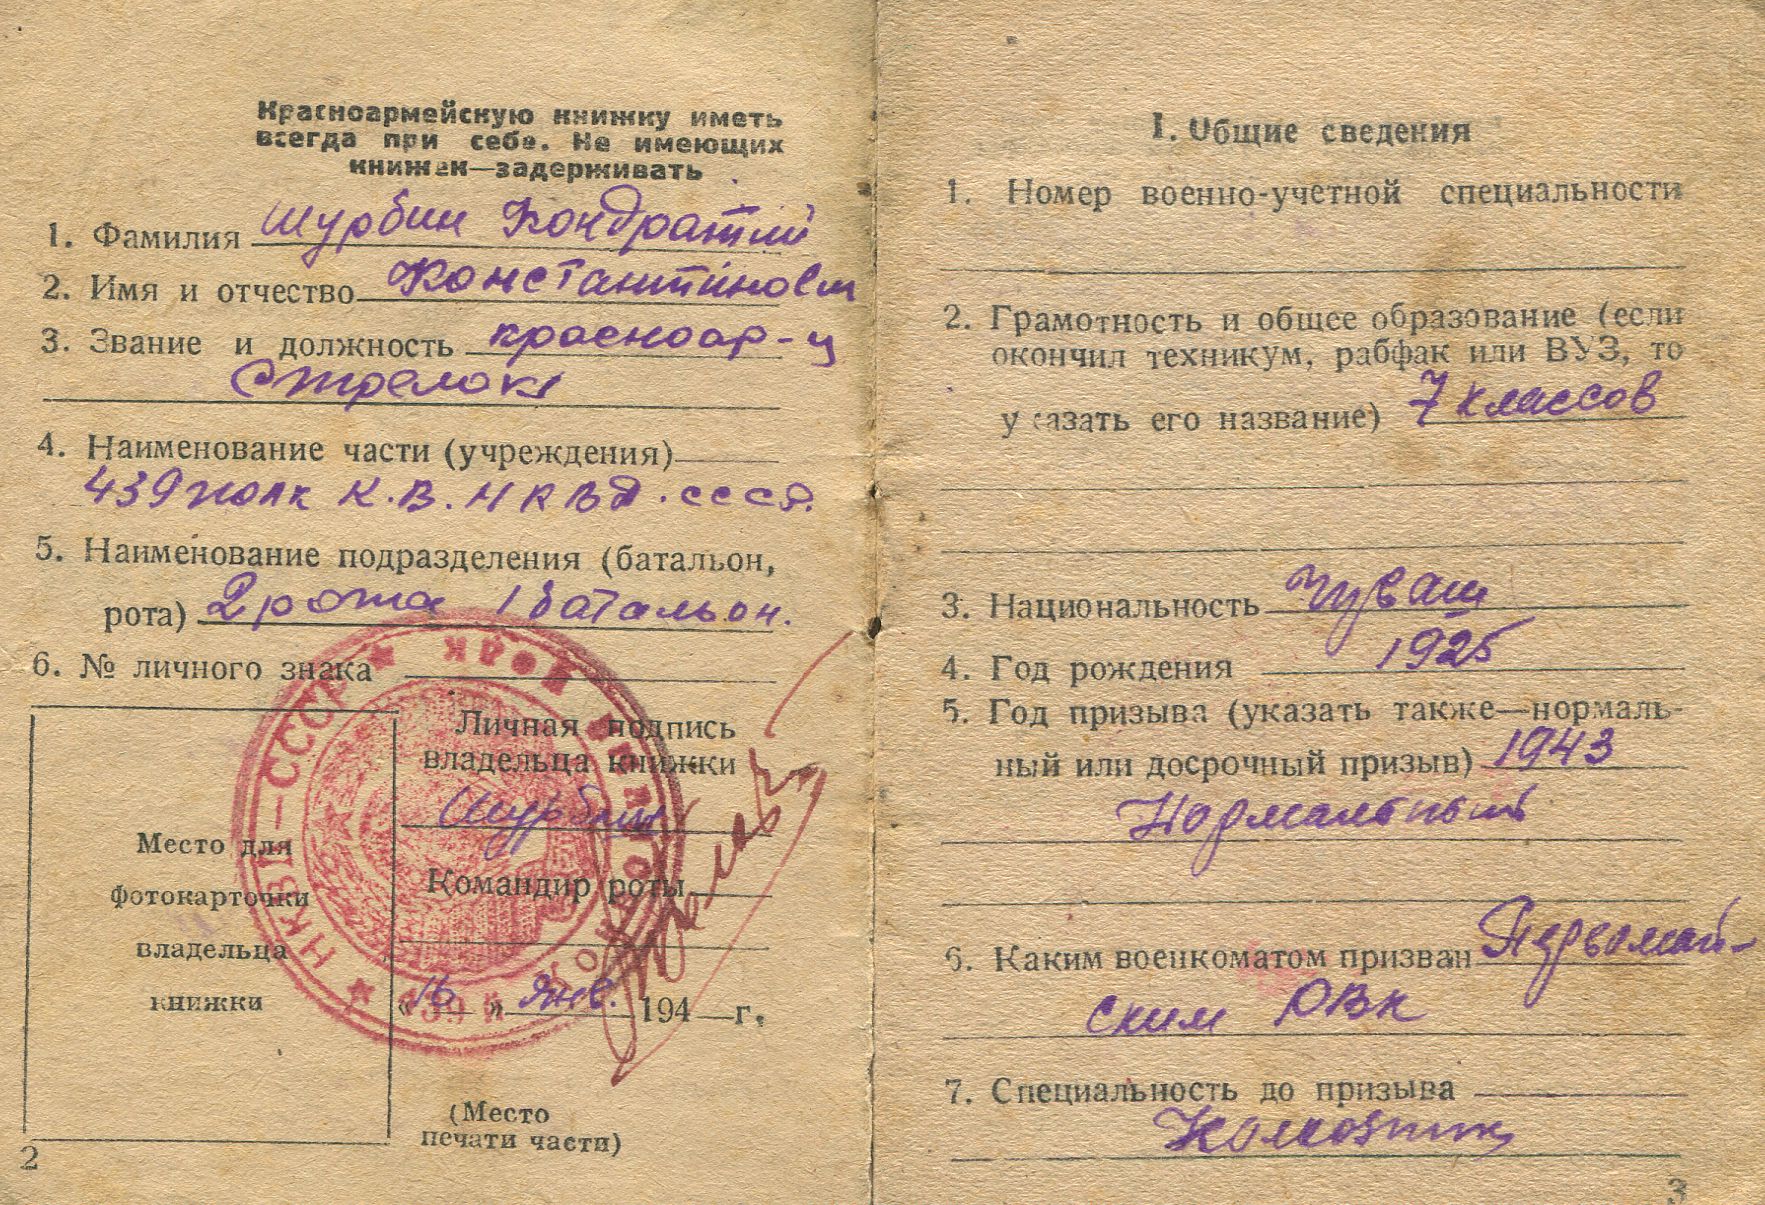 Красноармейскую книжку иметь
всегда при себе. Не имеющих
книжек—задерживать
1. Фамилия Шурбин Кондратий
2. Имя и отчество Константинович
3. Звание и должность красноар-ц
Стрелок
4. Наименование части (учреждения)
439 полк К.В. НКВД. СССР.
5. Наименование подразделения (батальон,
рота) 2 рота 1 батальон.
6. № личного знака
Личная подпись
владельца книжки
Шурбин
Командир роты
«16» Янв. 194 г.
Место для
фотокарточки
владельца
книжки
НКВД—СССР
(Место
печати части)
2
I. Общие сведения
1. Номер военно-учетной специальности
2. Грамотность и общее образование (если
окончил техникум, рабфак или ВУЗ, то
указать его название) 7 классов
3. Национальность Чуваш
4. Год рождения 1925
5. Год призыва (указать также—нормаль-
ный или досрочный призыв) 1943
Нормальный
6. Каким военкоматом призван Первомай-
ским РВК
7. Специальность до призыва
Колхозник
3